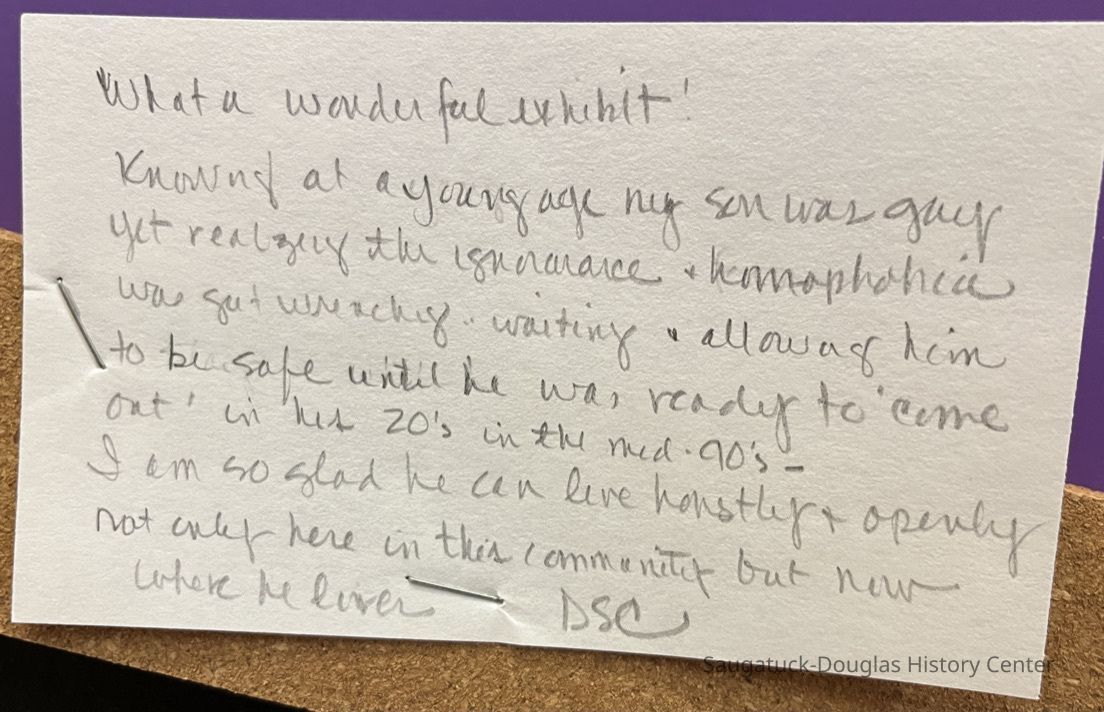 What a wonderful exhibit!
Knowing at a young age my son was gay
yet realzing the ignorance + homophobia
was gut wrenching.. waiting + allowing him
to be safe until he was ready to 'come
out' in his 20's in the mid-90's -
I am so glad he can live honstly + openly
not only here in this community but now
where he lives DSC
Saugatuck-Douglas History Center